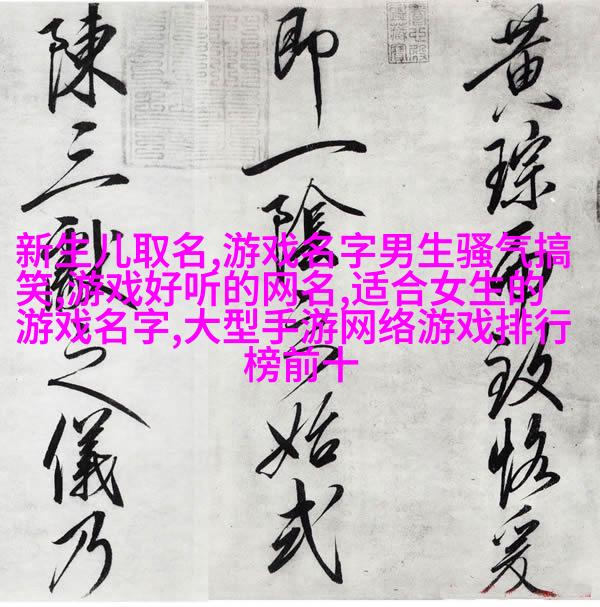 新生儿取名,游戏名字男生骚气搞
笑,游戏好听的网名,适合女生的
游戏名字,大型手游网络游戏排行
榜前十
黄琮致恪爰
即一陰之始式
陳三獻之儀乃